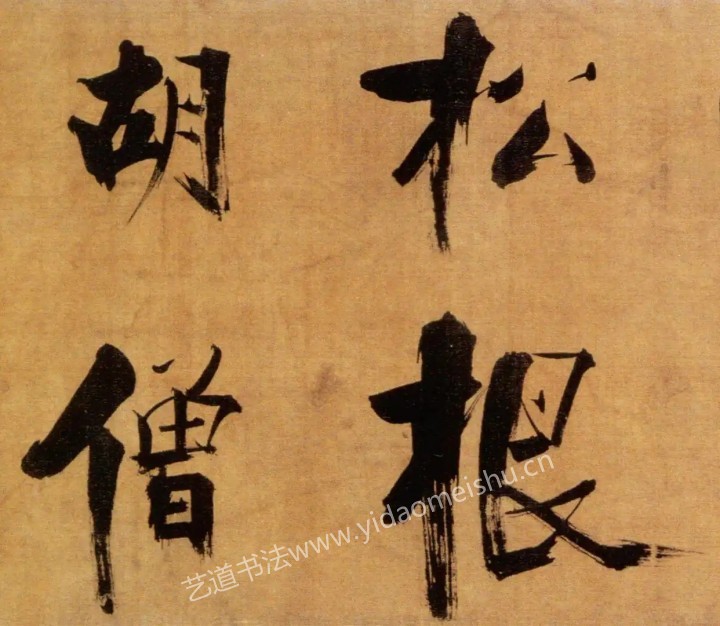 松根
胡僧
艺道书法www.yidaomeishu.cn